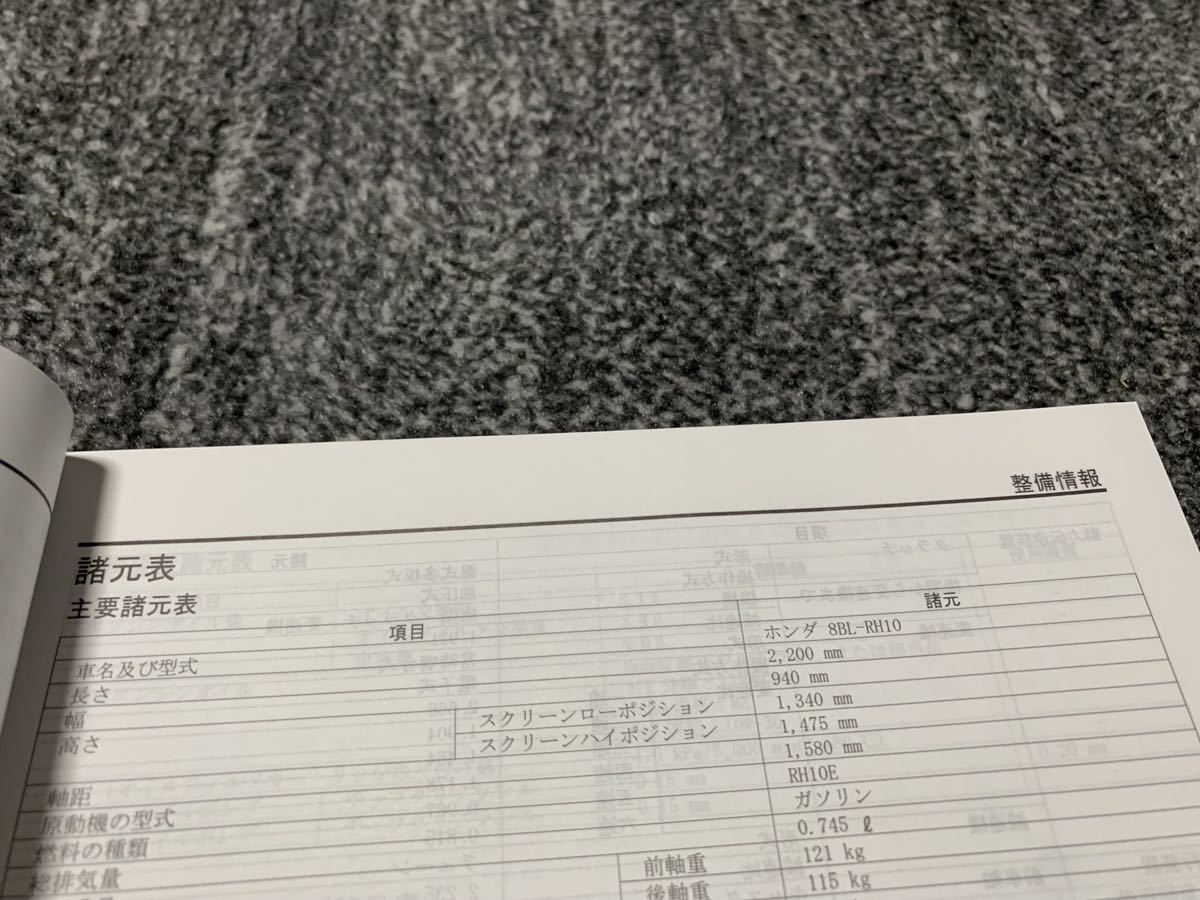 整備情報
諸元表
主要諸元表
項目 諸元
車名及び型式 ホンダ 8BL-RH10
長さ 2,200 mm
幅 940 mm
高さ スクリーンローポジション 1,340 mm
スクリーンハイポジション 1,475 mm
軸距 1,580 mm
原動機の型式 RH10E
燃料の種類 ガソリン
総排気量 0.745 ℓ
前軸重 121 kg
後軸重 115 kg